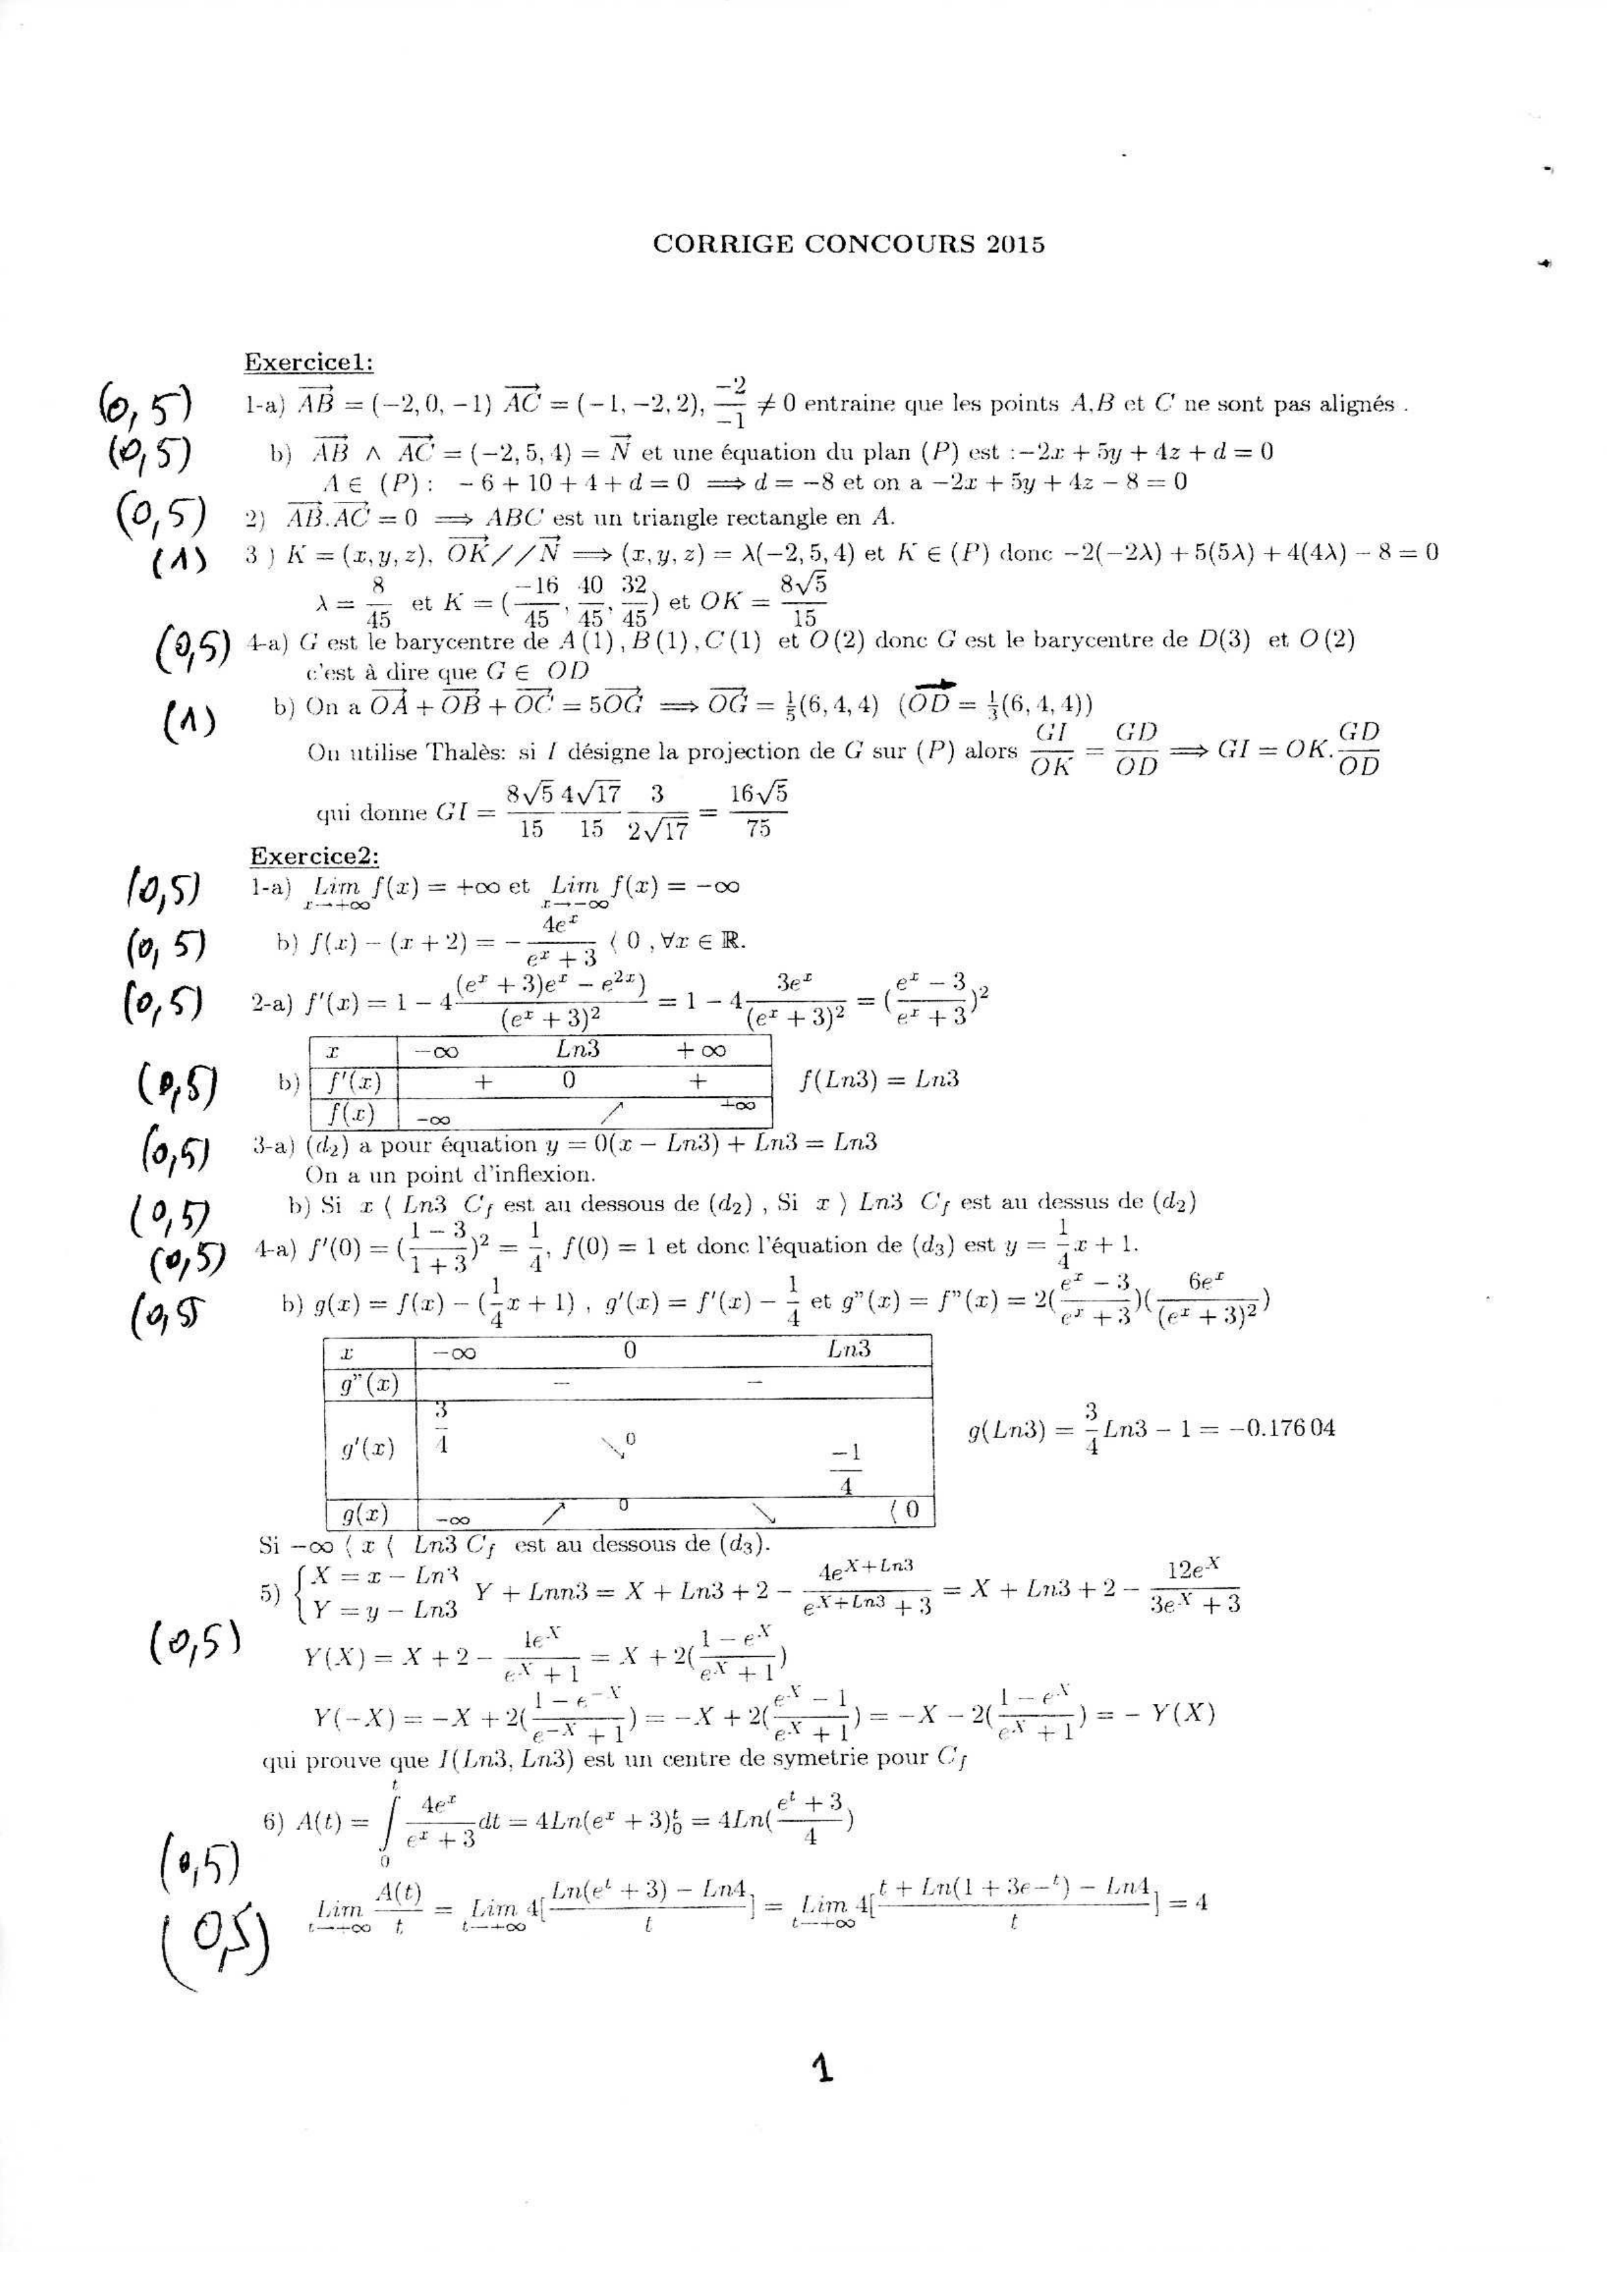 CORRIGE CONCOURS 2015
Exercice1:
(0,5) 1-a) $\overrightarrow{AB} = (-2, 0, -1)$ $\overrightarrow{AC} = (-1, -2, 2)$, $\frac{-2}{-1} \neq 0$ entraine que les points A,B et C ne sont pas alignés .
(0,5) b) $\overrightarrow{AB} \wedge \overrightarrow{AC} = (-2, 5, 4) = \overrightarrow{N}$ et une équation du plan (P) est :$-2x + 5y + 4z + d = 0$
$A \in (P) : -6 + 10 + 4 + d = 0 \Longrightarrow d = -8$ et on a $-2x + 5y + 4z - 8 = 0$
(0,5) 2) $\overrightarrow{AB}.\overrightarrow{AC} = 0 \Longrightarrow ABC$ est un triangle rectangle en A.
(1) 3 ) $K = (x, y, z)$, $\overrightarrow{OK} // \overrightarrow{N} \Longrightarrow (x, y, z) = \lambda(-2, 5, 4)$ et $K \in (P)$ donc $-2(-2\lambda) + 5(5\lambda) + 4(4\lambda) - 8 = 0$
$\lambda = \frac{8}{45}$ et $K = (\frac{-16}{45}, \frac{40}{45}, \frac{32}{45})$ et $OK = \frac{8\sqrt{5}}{15}$
(0,5) 4-a) G est le barycentre de A (1) , B (1) , C (1) et O (2) donc G est le barycentre de D(3) et O (2)
c'est à dire que $G \in OD$
(1) b) On a $\overrightarrow{OA} + \overrightarrow{OB} + \overrightarrow{OC} = 5\overrightarrow{OG} \Longrightarrow \overrightarrow{OG} = \frac{1}{5}(6, 4, 4)$ $(\overrightarrow{OD} = \frac{1}{3}(6, 4, 4))$
On utilise Thalès: si I désigne la projection de G sur (P) alors $\frac{GI}{OK} = \frac{GD}{OD} \Longrightarrow GI = OK.\frac{GD}{OD}$
qui donne $GI = \frac{8\sqrt{5}}{15} \frac{4\sqrt{17}}{15} \frac{3}{2\sqrt{17}} = \frac{16\sqrt{5}}{75}$
Exercice2:
(0,5) 1-a) $\underset{x \to +\infty}{Lim} f(x) = +\infty$ et $\underset{x \to -\infty}{Lim} f(x) = -\infty$
(0,5) b) $f(x) - (x + 2) = -\frac{4e^x}{e^x + 3} \langle 0 , \forall x \in \mathbb{R}$.
(0,5) 2-a) $f'(x) = 1 - 4\frac{(e^x + 3)e^x - e^{2x})}{(e^x + 3)^2} = 1 - 4\frac{3e^x}{(e^x + 3)^2} = (\frac{e^x - 3}{e^x + 3})^2$
x −∞ Ln3 +∞
(0,5) b) f'(x) + 0 + f(Ln3) = Ln3
f(x) −∞ ↗ +∞
(0,5) 3-a) $(d_2)$ a pour équation $y = 0(x - Ln3) + Ln3 = Ln3$
On a un point d'inflexion.
(0,5) b) Si $x \langle Ln3$ $C_f$ est au dessous de $(d_2)$ , Si $x \rangle Ln3$ $C_f$ est au dessus de $(d_2)$
(0,5) 4-a) $f'(0) = (\frac{1 - 3}{1 + 3})^2 = \frac{1}{4}$, $f(0) = 1$ et donc l'équation de $(d_3)$ est $y = \frac{1}{4}x + 1$.
(0,5 b) $g(x) = f(x) - (\frac{1}{4}x + 1)$ , $g'(x) = f'(x) - \frac{1}{4}$ et $g''(x) = f''(x) = 2(\frac{e^x - 3}{e^x + 3})(\frac{6e^x}{(e^x + 3)^2})$
x −∞ 0 Ln3
g"(x) − −
g'(x) $\frac{3}{4}$ ↘ 0 $\frac{-1}{4}$ $g(Ln3) = \frac{3}{4}Ln3 - 1 = -0.17604$
g(x) −∞ ↗ 0 ↘ ⟨ 0
Si $-\infty \langle x \langle Ln3$ $C_f$ est au dessous de $(d_3)$.
5) $\begin{cases} X = x - Ln3 \\ Y = y - Ln3 \end{cases}$ $Y + Lnn3 = X + Ln3 + 2 - \frac{4e^{X+Ln3}}{e^{X+Ln3} + 3} = X + Ln3 + 2 - \frac{12e^X}{3e^X + 3}$
(0,5) $Y(X) = X + 2 - \frac{4e^X}{e^X + 1} = X + 2(\frac{1 - e^X}{e^X + 1})$
$Y(-X) = -X + 2(\frac{1 - e^{-X}}{e^{-X} + 1}) = -X + 2(\frac{e^X - 1}{e^X + 1}) = -X - 2(\frac{1 - e^X}{e^X + 1}) = -Y(X)$
qui prouve que $I(Ln3, Ln3)$ est un centre de symetrie pour $C_f$
(0,5) 6) $A(t) = \int_0^t \frac{4e^x}{e^x + 3}dt = 4Ln(e^x + 3)_0^t = 4Ln(\frac{e^t + 3}{4})$
(0,5) $\underset{t \to +\infty}{Lim} \frac{A(t)}{t} = \underset{t \to +\infty}{Lim} 4[\frac{Ln(e^t + 3) - Ln4}{t}] = \underset{t \to +\infty}{Lim} 4[\frac{t + Ln(1 + 3e-^t) - Ln4}{t}] = 4$
1